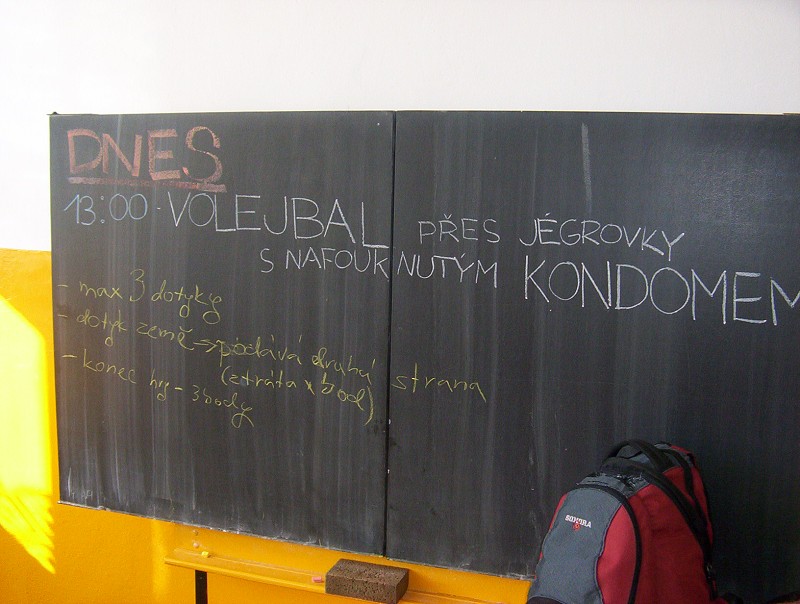 DNES
13:00 - VOLEJBAL PŘES JÉGROVKY
S NAFOUKNUTÝM KONDOMEM
- max 3 dotyky
- dotyk země → podává druhá strana
(ztráta bod)
- konec hry - 3 body